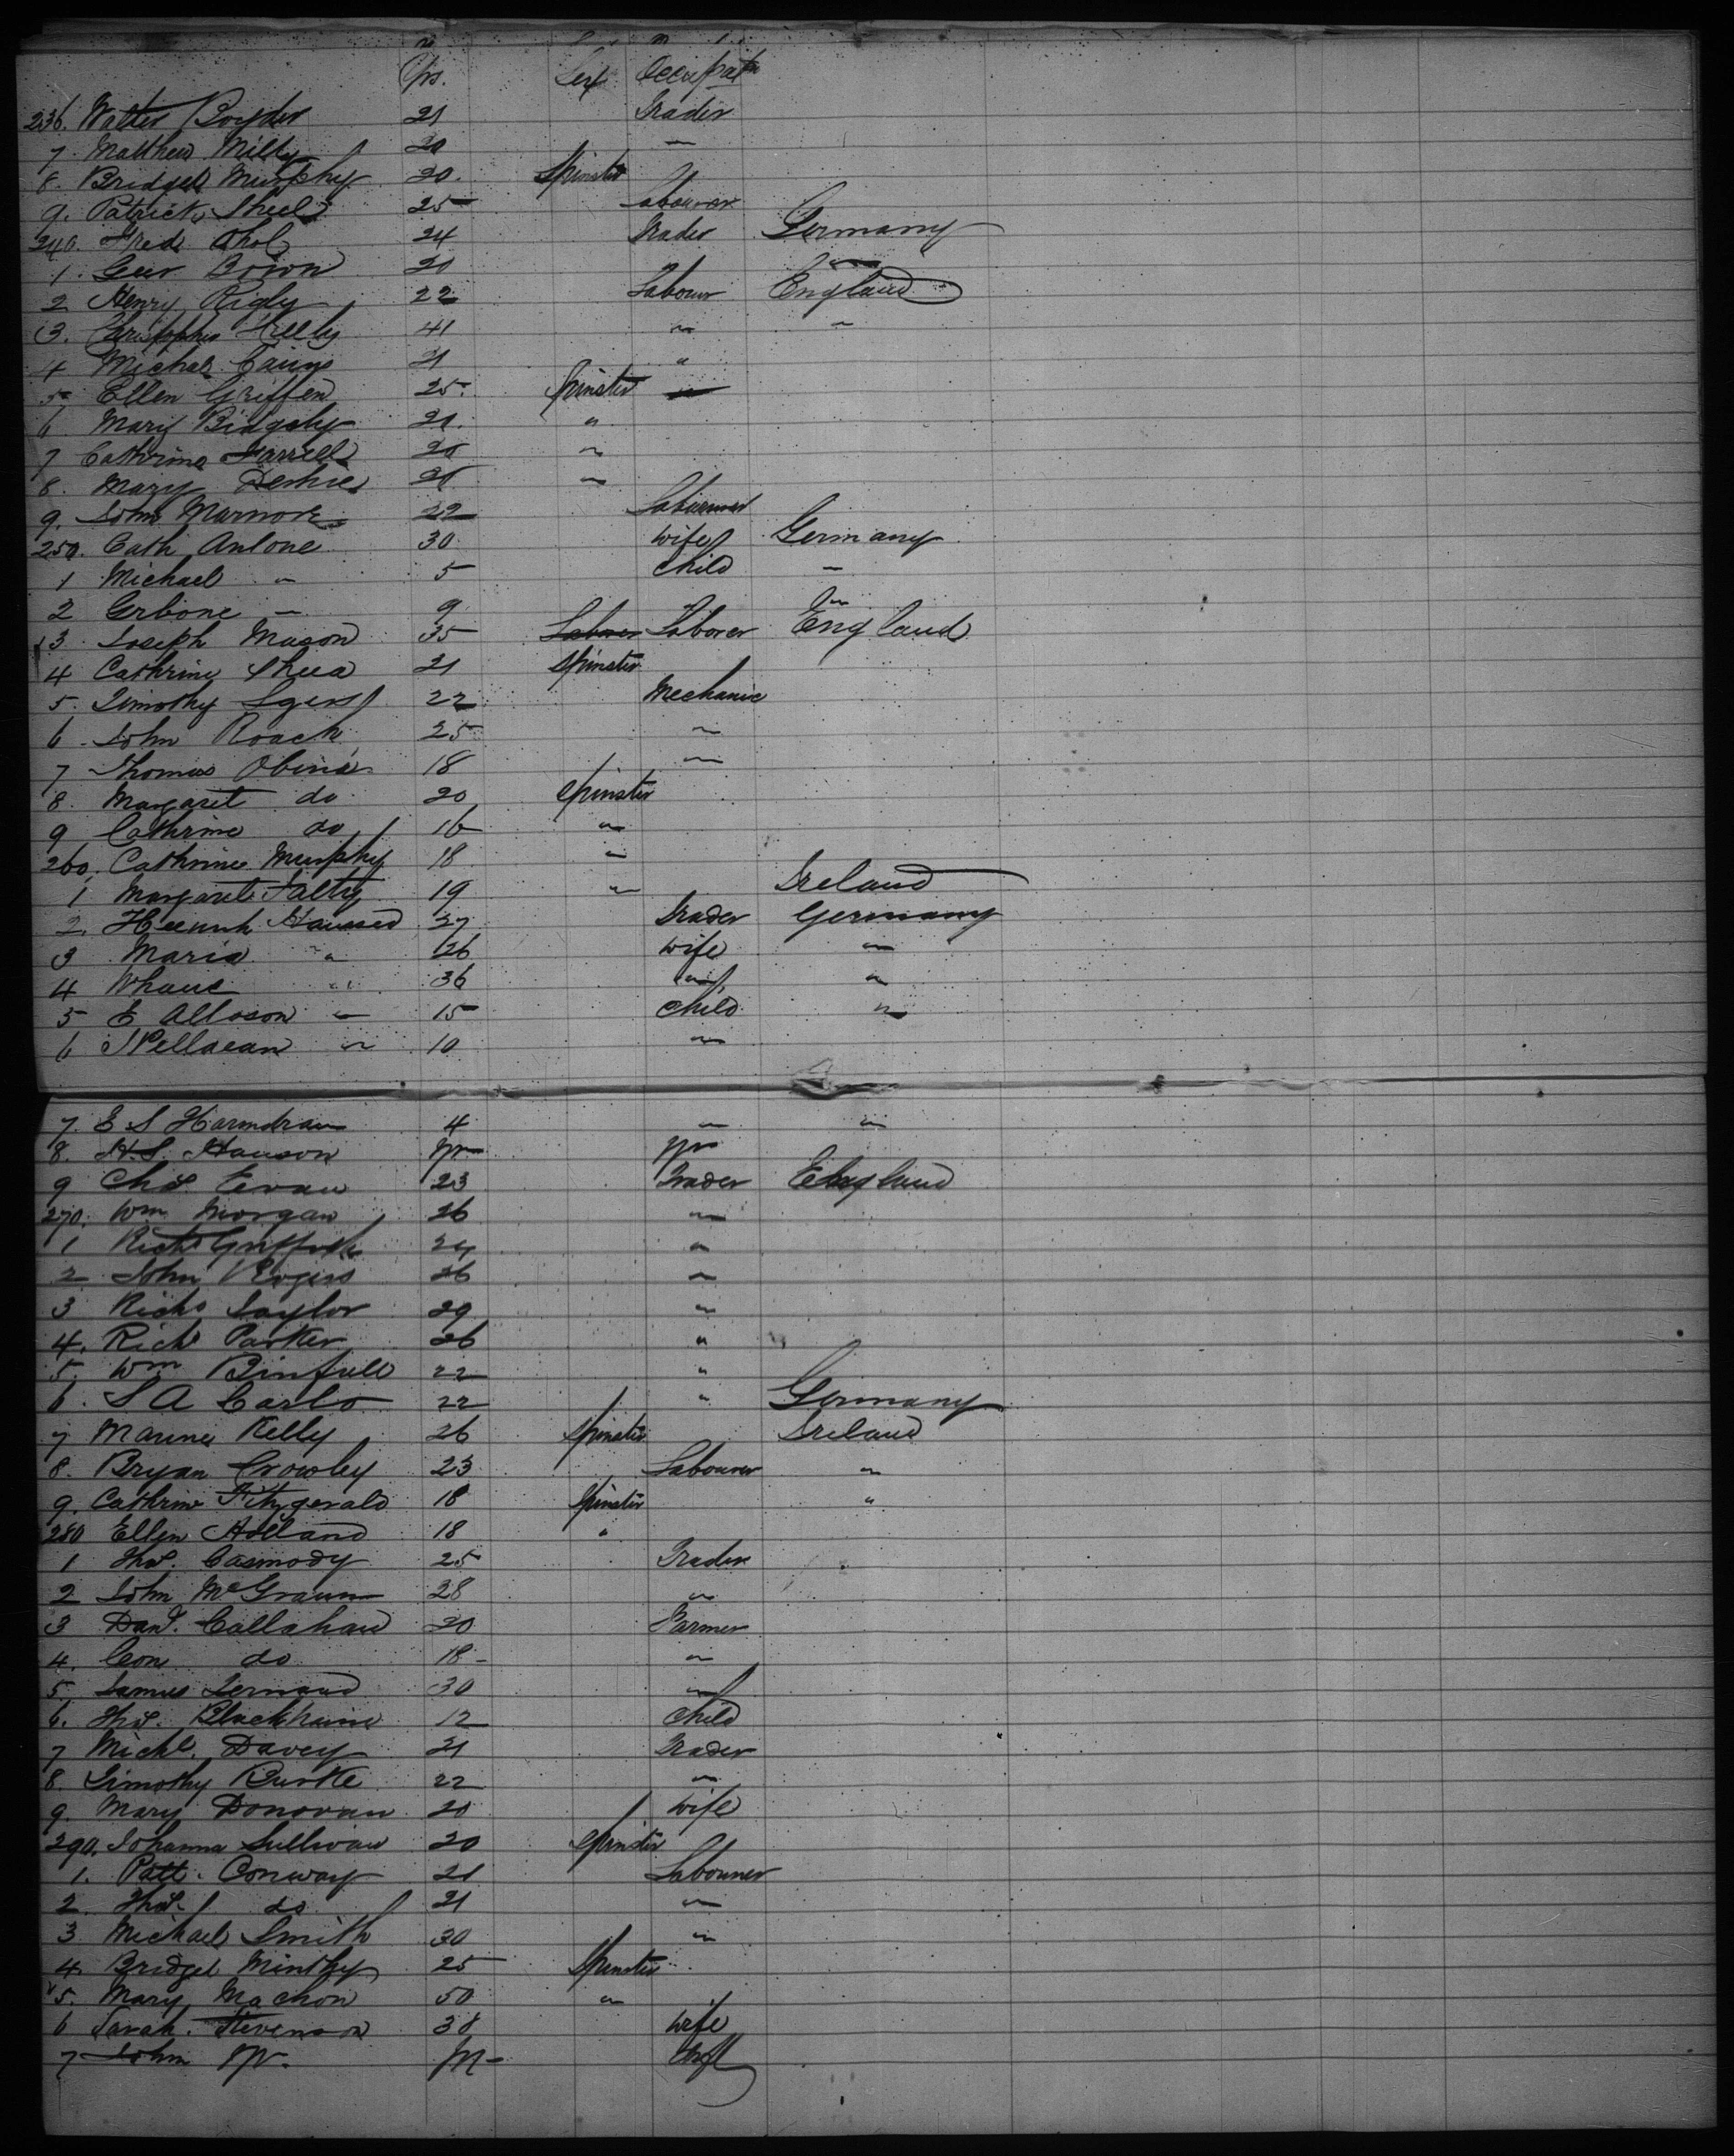 Yrs. Sex Occupatn
236. Walter Boyder 21 Trader
7. Matthew Milly 20 "
8. Bridget Murphy 20. Spinster
9. Patrick Sheel 25 Labourer
240 Fred Ohol 24 Trader Germany
1. Geor Brown 20 "
2 Henry Rigly 22 Labour England
3. Christopher Kielly 41 " "
4 Michal Cairns 21 "
5 Ellen Griffen 25. Spinster
6 Mary Bidgehy 21. "
7 Cathrina Farrell 20 "
8. Mary 20 "
9. John Marnore 22 Labourer
250. Cath Antone 30 Wife Germany
1 Michael " 5 Child "
2 Gerbone " 9 "
3. Joseph Mason 35 Laborer Laborer England
4 Cathrine Shea 21 Spinster
5. Timothy 22 Mechanic
6. John Roach 25 "
7 Thomas Obina 18 "
8. Margaret do 20 Spinster
9 Cathrine do 16 "
260. Cathrine Murphy 18 "
1 Margaret Falty 19 " Ireland
2. Heenrich 27 Trader Germany
3 Maria " 26 Wife "
4 " 36 " "
5 E Alloson " 15 Child "
6 " 10 "
7. E S Harmdran 4 " "
8. H.S. Hanson
9 Chs. Evan 23 Trader England
270. Wm Morgan 26 "
1 Richd Griffith 24 "
2 John Rogers 26 "
3 Richd Taylor 29 "
4. Richd Parker 26 "
5. Wm Binfull 22 "
6. S A Carlo 22 " Germany
7 Marine Kelly 26 Spinster Ireland
8. Bryan Crowley 23 Labourer "
9. Cathrine Fitzgerald 18 Spinster "
280 Ellen Holland 18 "
1 Ths. Casmody 25 Trader
2 John McGraun 28 "
3 Danl. Callahan 20 Farmer
4. Con do 18 - "
5 James 30 "
6. Ths. 12 Child
7 Michl. Davey 21 Trader
8. Timothy Burke 22 "
9. Mary Donovan 20 Wife
290. Johanna Sullivan 20 Spinster
1. Patt. Conway 21 Labourer
2. Ths. do 21 "
3 Michael Smith 30 "
4. Bridget Minthy 25 Spinster
5. Mary Machon 50 "
6 Sarah. Stevenson 38 Wife
7 John